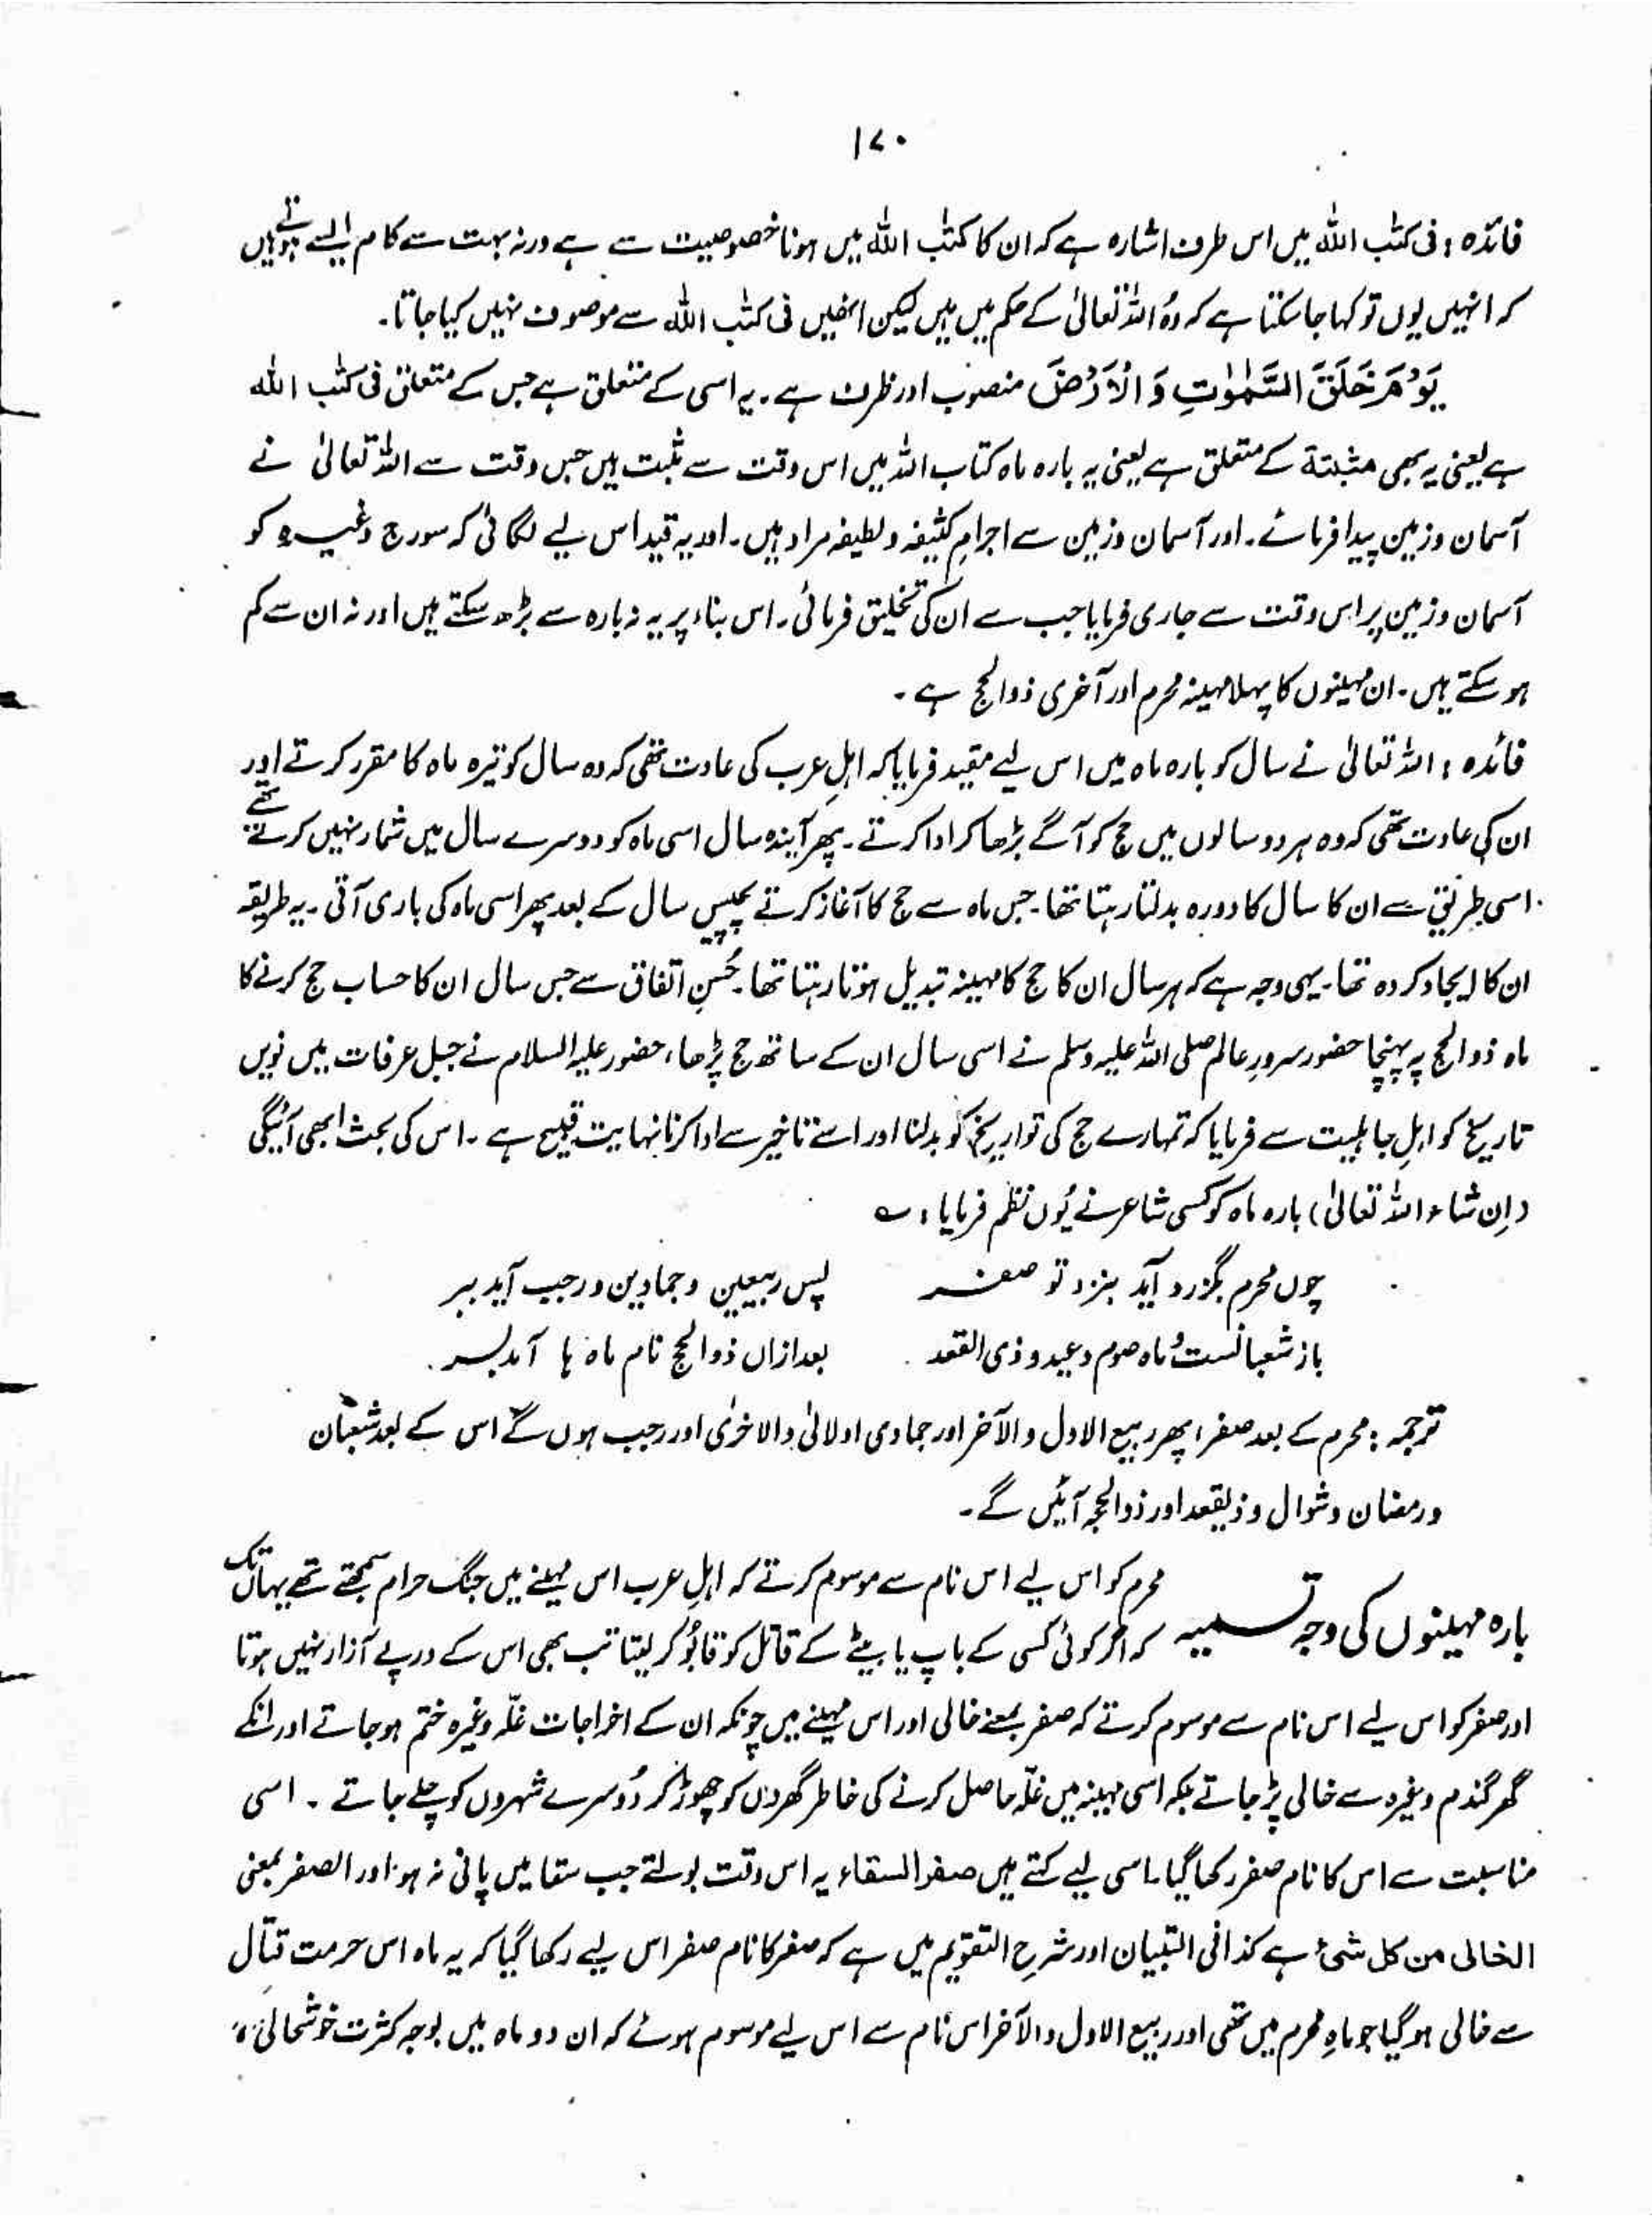 ۱۷۰
فائدہ : فی کتٰب اللہ میں اس طرف اشارہ ہے کہ ان کا کتٰب اللہ میں ہونا خصوصیت سے ہے ورنہ بہت سے کام ایسے ہوتے ہیں
کہ انہیں یوں تو کہا جا سکتا ہے کہ وُہ اللہ تعالیٰ کے حکم میں ہیں لیکن انھیں فی کتٰب اللہ سے موصوف نہیں کیا جاتا۔
یَوْمَ خَلَقَ السَّمٰوٰتِ وَ الْاَرْضَ منصوب اور ظرف ہے۔ یہ اسی کے متعلق ہے جس کے متعلق فی کتٰب اللہ
ہے یعنی یہ بھی مثبتة کے متعلق ہے یعنی یہ بارہ ماہ کتاب اللہ میں اس وقت سے ثبت ہیں جس وقت سے اللہ تعالیٰ نے
آسمان و زمین پیدا فرمائے۔ اور آسمان و زمین سے اجرامِ کثیفہ و لطیفہ مراد ہیں۔ اور یہ قید اس لیے لگائی کہ سورج وغیرہ کو
آسمان و زمین پر اس وقت سے جاری فرمایا جب سے ان کی تخلیق فرمائی۔ اس بناء پر یہ نہ بارہ سے بڑھ سکتے ہیں اور نہ ان سے کم
ہو سکتے ہیں۔ ان مہینوں کا پہلا مہینہ محرم اور آخری ذوالحج ہے۔
فائدہ : اللہ تعالیٰ نے سال کو بارہ ماہ میں اس لیے مقید فرمایا کہ اہلِ عرب کی عادت تھی کہ وہ سال کو تیرہ ماہ کا مقرر کرتے اور
ان کی عادت تھی کہ وہ ہر دو سالوں میں حج کو آگے بڑھا کر ادا کرتے۔ پھر آیندہ سال اسی ماہ کو دوسرے سال میں شمار نہیں کرتے تھے
اسی طریقے سے ان کا سال کا دورہ بدلتا رہتا تھا۔ جس ماہ سے حج کا آغاز کرتے پچیس سال کے بعد پھر اسی ماہ کی باری آتی۔ یہ طریقہ
ان کا ایجاد کردہ تھا۔ یہی وجہ ہے کہ ہر سال ان کا حج کا مہینہ تبدیل ہوتا رہتا تھا۔ حُسنِ اتفاق سے جس سال ان کا حساب حج کرنے کا
ماہ ذوالحج پہ پہنچا حضور سرورِ عالم صلی اللہ علیہ وسلم نے اسی سال ان کے ساتھ حج پڑھا، حضور علیہ السلام نے جبل عرفات میں نویں
تاریخ کو اہلِ جاہلیت سے فرمایا کہ تمہارے حج کی تواریخ کو بدلنا اور اسے تاخیر سے ادا کرنا نہایت قبیح ہے۔ اس کی بحث ابھی آئیگی
(اِن شاء اللہ تعالیٰ) بارہ ماہ کو کسی شاعر نے یُوں نظم فرمایا : ؎
چوں محرم بگزرد آید بنزد تو صفر پس ربیعین و جمادین و رجب آید ببر
باز شعبانست و ماہ صوم و عید و ذی القعد بعد ازاں ذوالحج نام ماہ ہا آمد بسر
ترجمہ : محرم کے بعد صفر، پھر ربیع الاول و الآخر اور جمادی اولالیٰ والاخریٰ اور رجب ہوں گے اس کے بعد شعبان
و رمضان و شوال و ذیقعد اور ذوالحجہ آئیں گے۔
بارہ مہینوں کی وجہ تسمیہ محرم کو اس لیے اس نام سے موسوم کرتے کہ اہلِ عرب اس مہینے میں جنگ حرام سمجھتے تھے یہاں تک
کہ اگر کوئی کسی کے باپ یا بیٹے کے قاتل کو قابُو کر لیتا تب بھی اس کے درپے آزار نہیں ہوتا
اور صفر کو اس لیے اس نام سے موسوم کرتے کہ صفر بمعنے خالی اور اس مہینے میں چونکہ ان کے اخراجات غلّہ وغیرہ ختم ہو جاتے اور انکے
گھر گندم وغیرہ سے خالی پڑ جاتے بلکہ اسی مہینہ میں غلّہ حاصل کرنے کی خاطر گھروں کو چھوڑ کر دُوسرے شہروں کو چلے جاتے۔ اسی
مناسبت سے اس کا نام صفر رکھا گیا۔ اسی لیے کہتے ہیں صفر السقاء یہ اس وقت بولتے جب سقا میں پانی نہ ہو اور الصفر بمعنی
الخالی من کل شئ ہے کذا فی التبیان اور شرح التقویم میں ہے کہ صفر کا نام صفر اس لیے رکھا گیا کہ یہ ماہ اس حرمت قتال
سے خالی ہو گیا جو ماہِ محرم میں تھی اور ربیع الاول والآخر اس نام سے اس لیے موسوم ہوئے کہ ان دو ماہ میں بوجہ کثرت خوشحالی